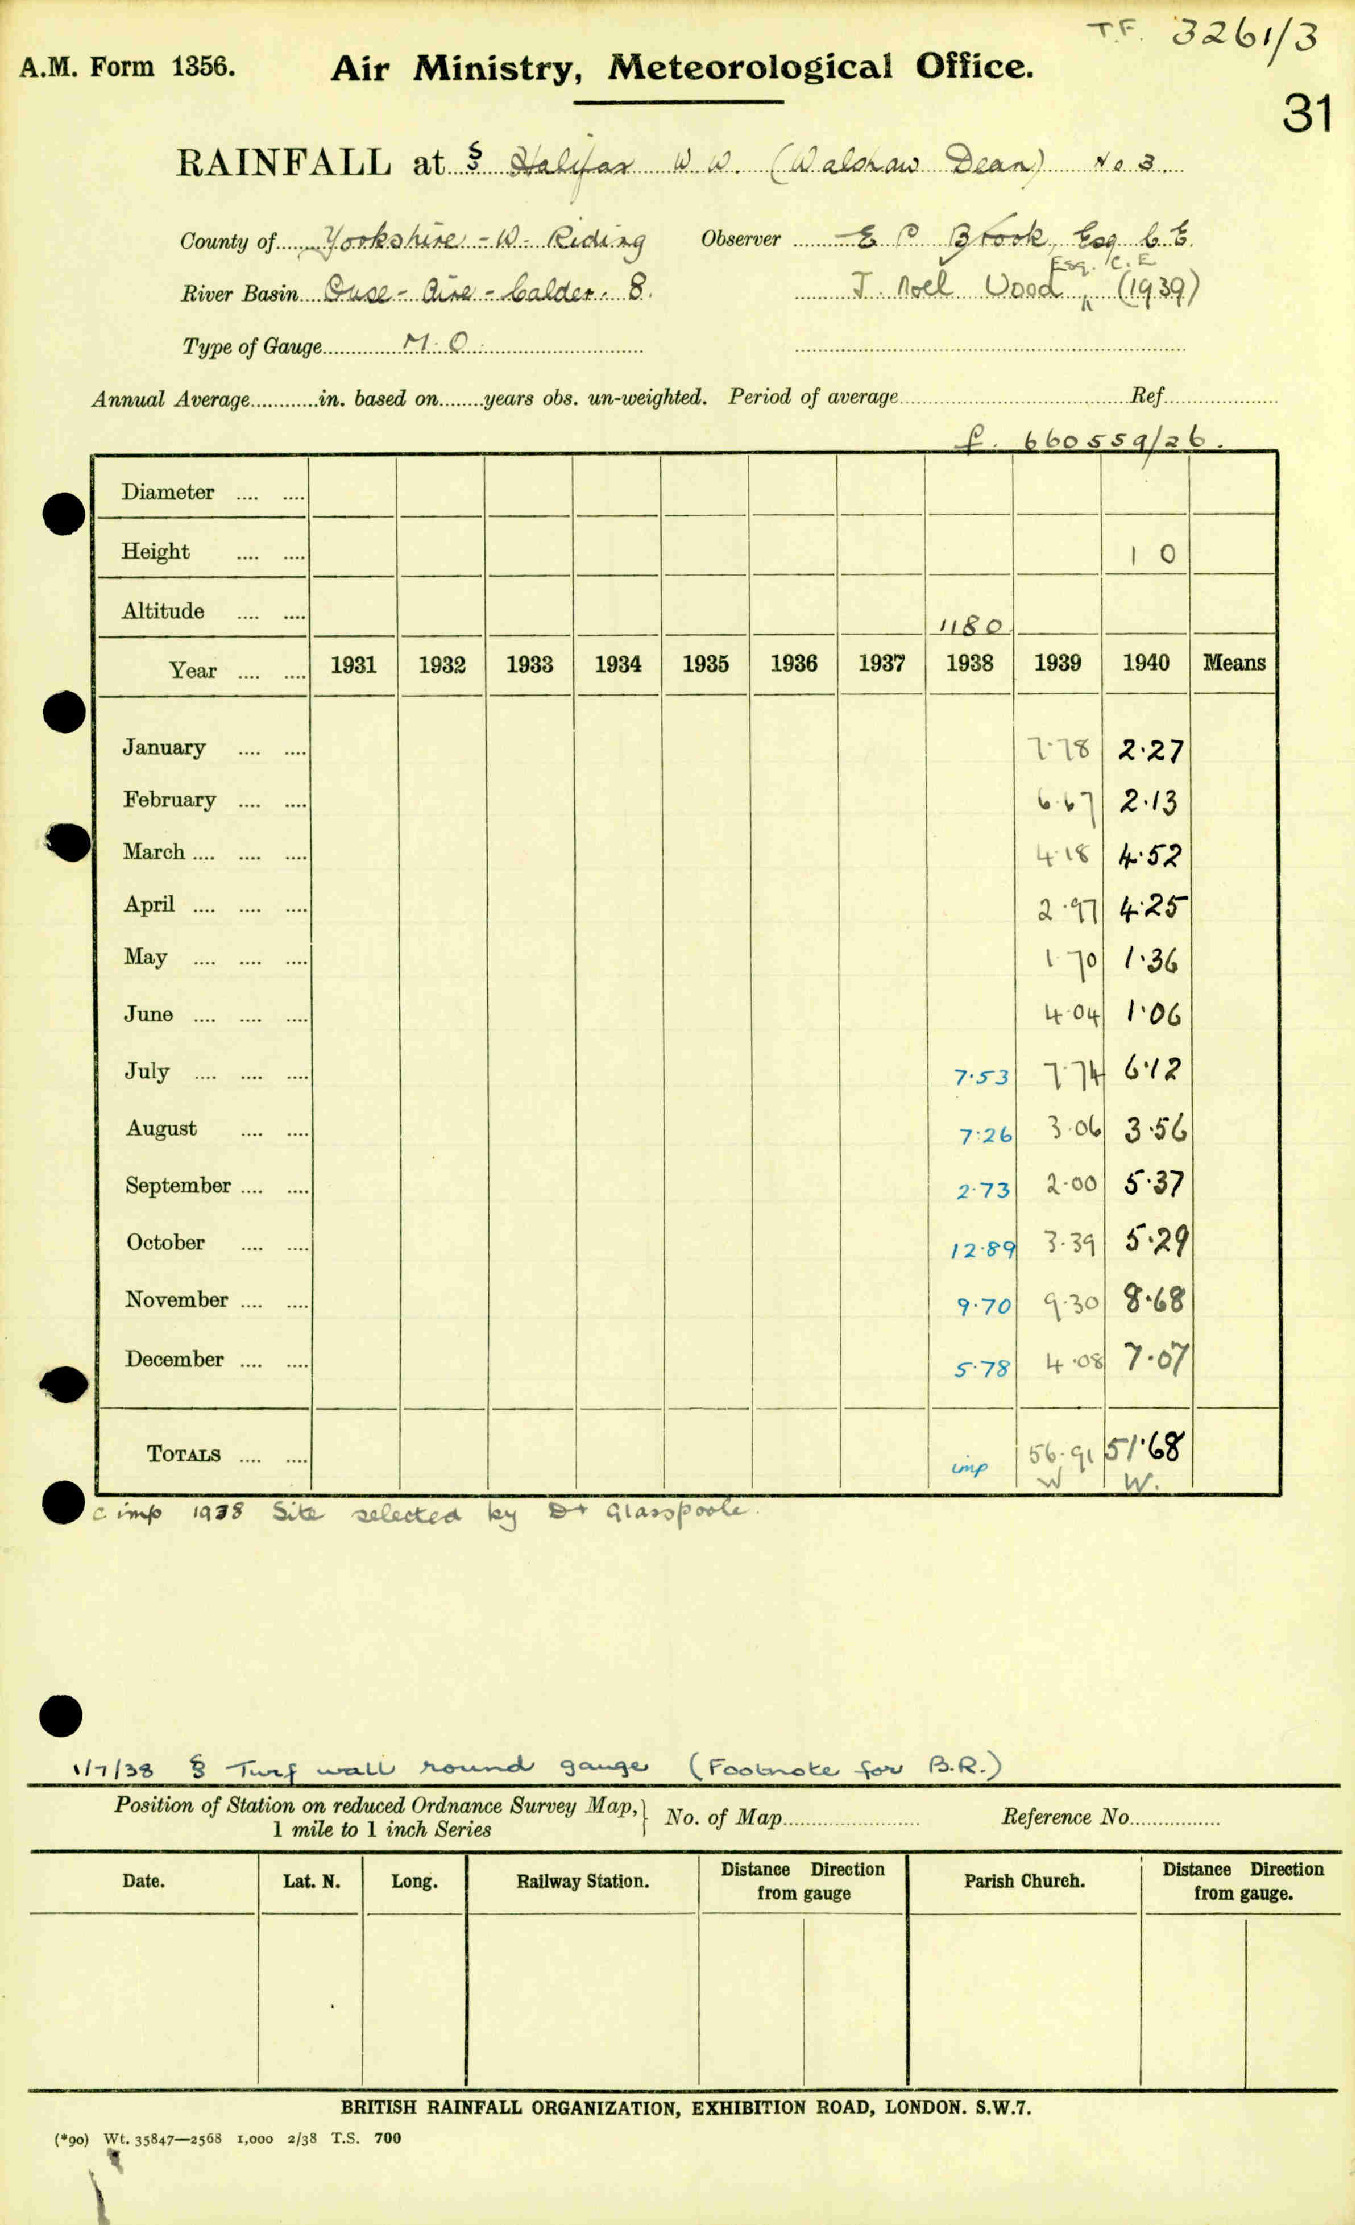 T.F. 3261/3
A.M. Form 1356. Air Ministry, Meteorological Office.
31
RAINFALL at § Halifax W.W. (Walshaw Dean) No 3.
County of Yorkshire - W. Riding Observer E P Brook, Esq C.E.
Esq. C.E
River Basin Ouse - Aire - Calder. 8. J. Noel Wood " (1939)
Type of Gauge M.O.
Annual Average in. based on years obs. un-weighted. Period of average Ref.
f. 660559/26.
Diameter .... ....
Height .... .... 1 0
Altitude .... .... 1180
Year .... .... 1931 1932 1933 1934 1935 1936 1937 1938 1939 1940 Means
January .... .... 7.78 2.27
February .... .... 6.67 2.13
March .... .... .... 4.18 4.52
April .... .... .... 2.97 4.25
May .... .... .... 1.70 1.36
June .... .... .... 4.04 1.06
July .... .... .... 7.53 7.74 6.12
August .... .... 7.26 3.06 3.56
September .... .... 2.73 2.00 5.37
October .... .... 12.89 3.39 5.29
November .... .... 9.70 9.30 8.68
December .... .... 5.78 4.08 7.07
TOTALS .... .... imp 56.91 51.68
W W.
c imp 1938 Site selected by Dr Glasspoole.
1/7/38 § Turf wall round gauge (Footnote for B.R.)
Position of Station on reduced Ordnance Survey Map, } No. of Map Reference No.
1 mile to 1 inch Series
Date. Lat. N. Long. Railway Station. Distance Direction from gauge Parish Church. Distance Direction from gauge.
BRITISH RAINFALL ORGANIZATION, EXHIBITION ROAD, LONDON. S.W.7.
(*90) Wt. 35847—2568 1,000 2/38 T.S. 700